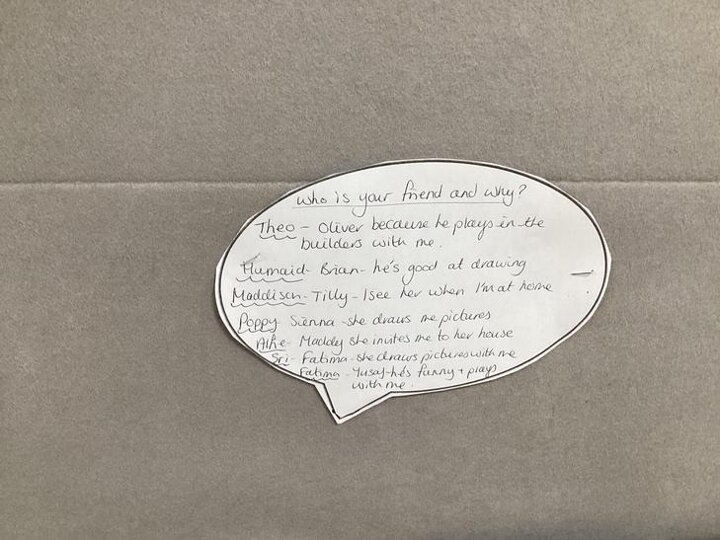 who is your friend and why?
Theo - Oliver because he plays in the
builders with me.
Humaid - Brian - he's good at drawing
Maddison - Tilly - I see her when I'm at home
Poppy Sienna - she draws me pictures
Maddy she invites me to her house
Sri - Fatima - she draws pictures with me
Fatima - Yusaf - he's funny + plays
with me.